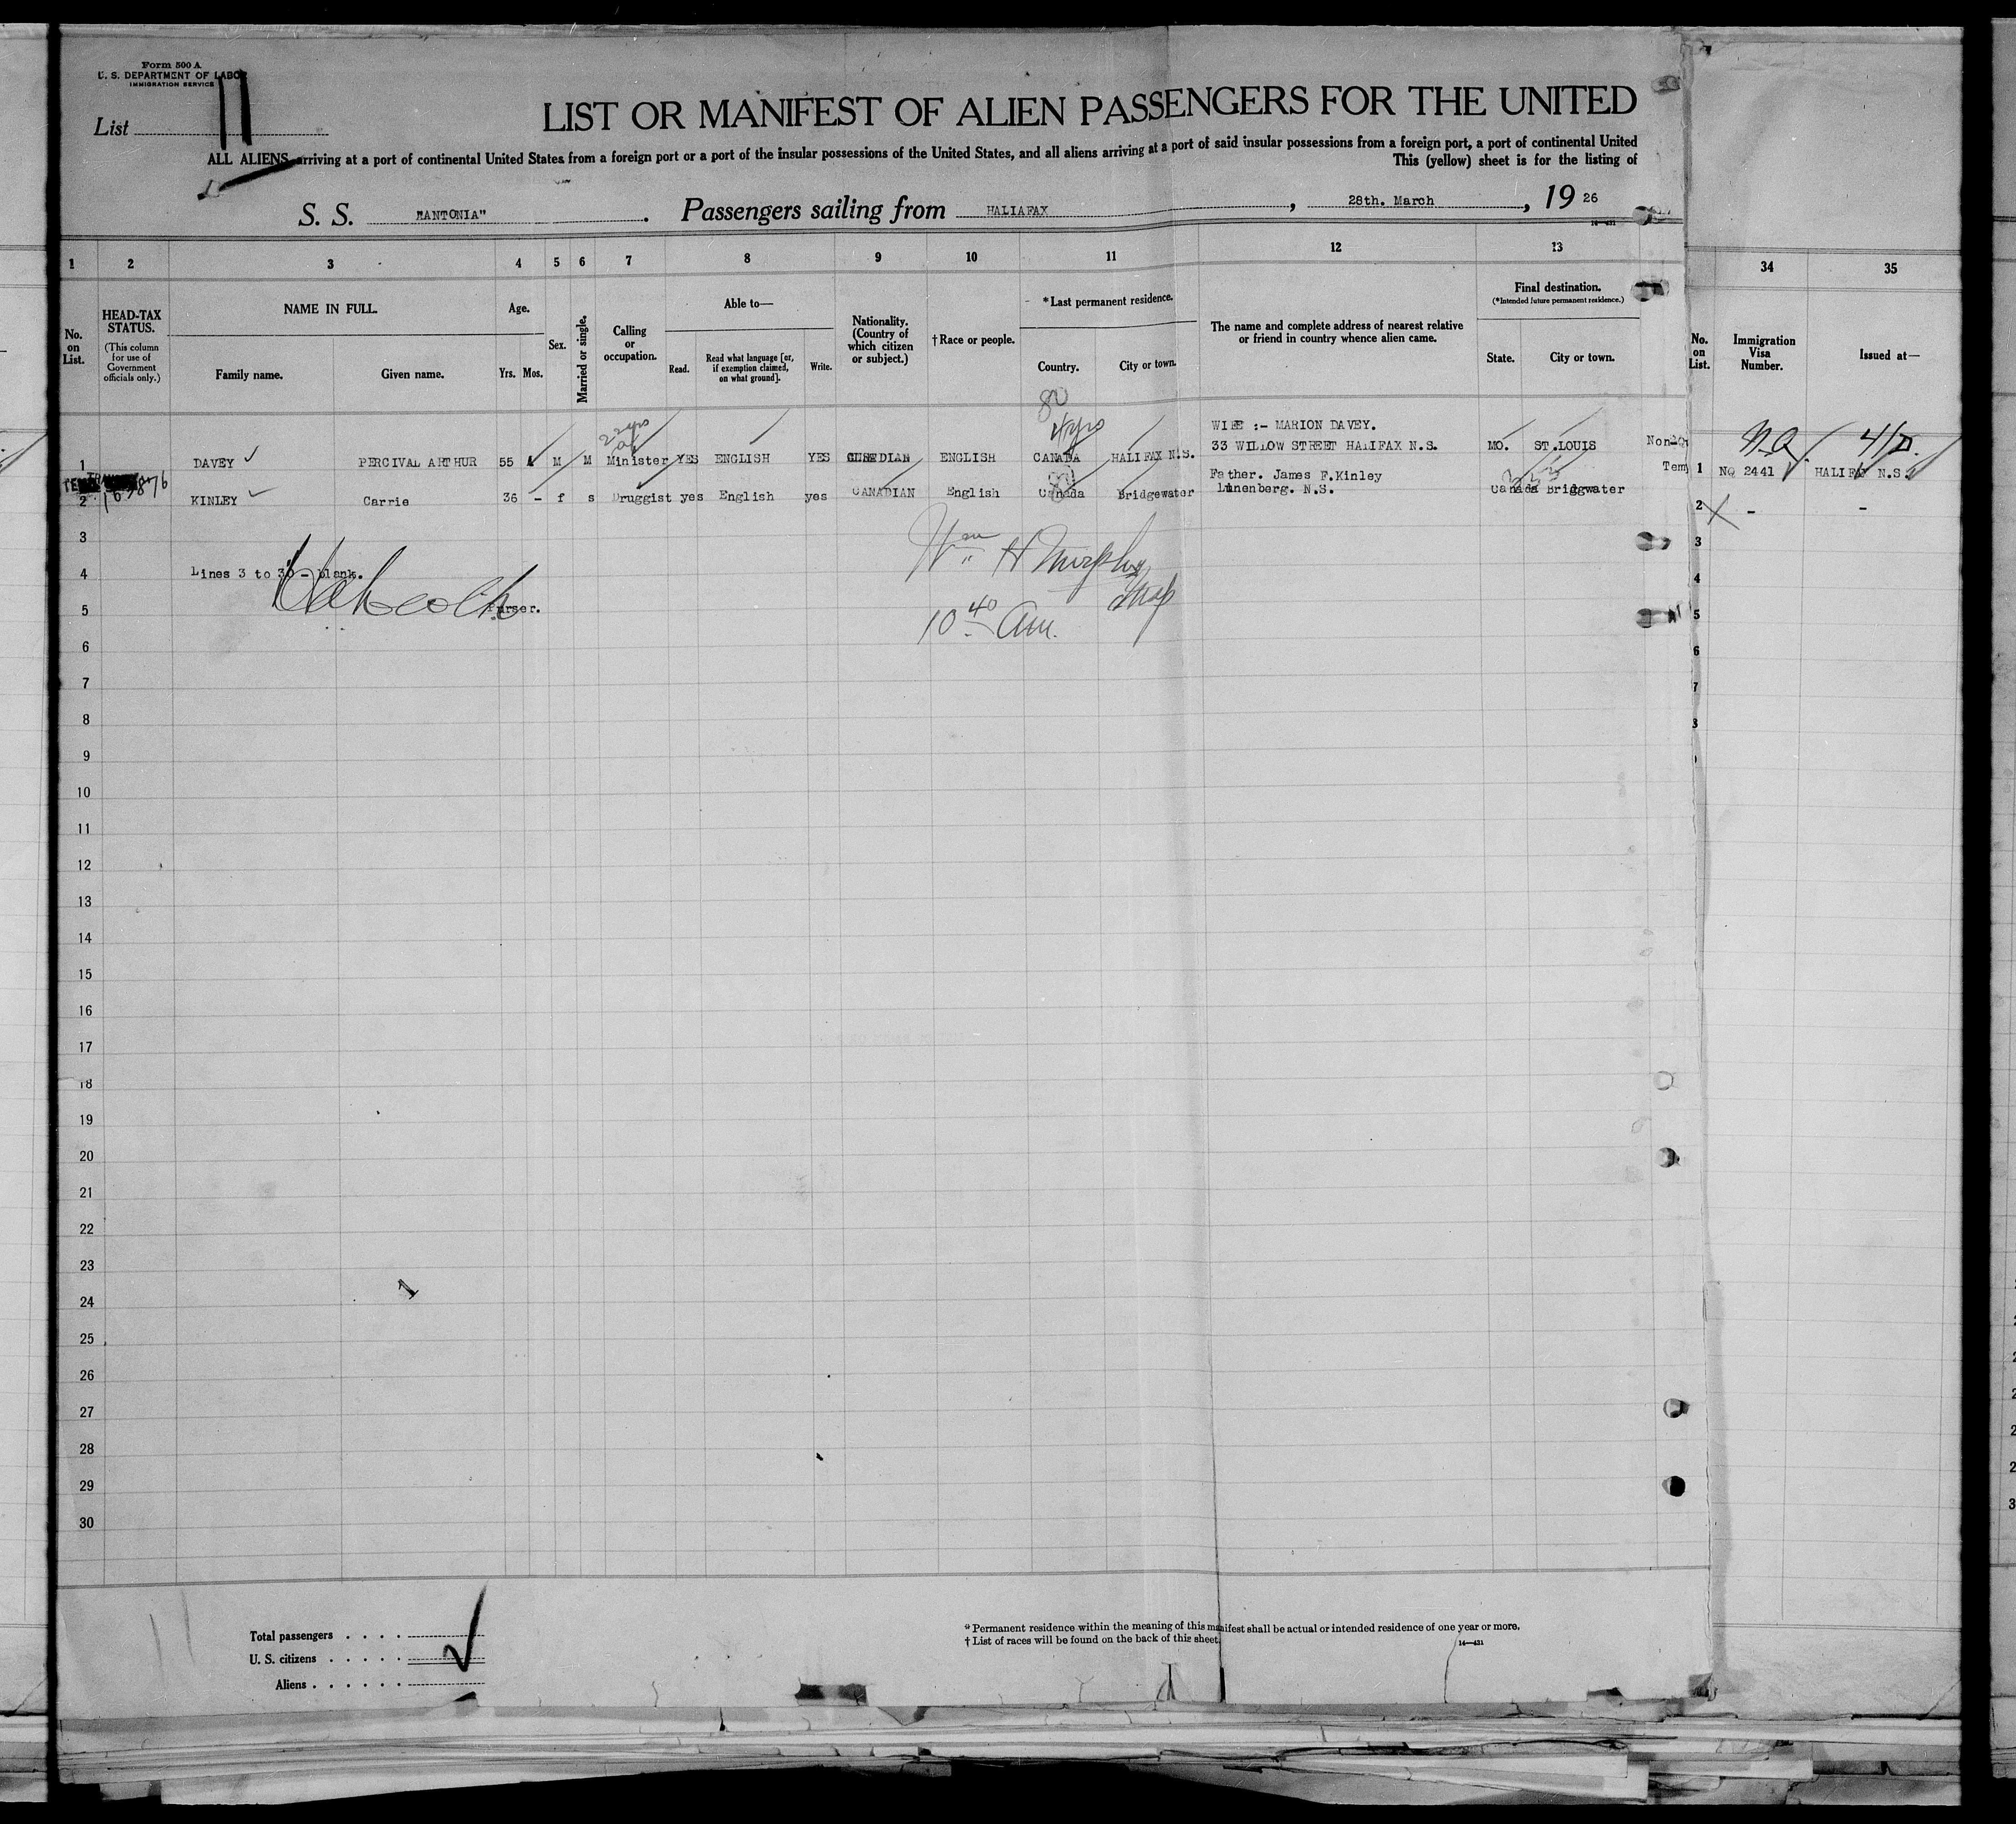 Form 500 A
U. S. DEPARTMENT OF LABOR
IMMIGRATION SERVICE
List 11
LIST OR MANIFEST OF ALIEN PASSENGERS FOR THE UNITED
ALL ALIENS arriving at a port of continental United States from a foreign port or a port of the insular possessions of the United States, and all aliens arriving at a port of said insular possessions from a foreign port, a port of continental United
This (yellow) sheet is for the listing of
S. S. "ANTONIA" . Passengers sailing from HALIAFAX , 28th. March , 19 26
1 2 3 4 5 6 7 8 9 10 11 12 13 34 35
No. on List.
HEAD-TAX STATUS.
(This column for use of Government officials only.)
NAME IN FULL.
Family name. Given name.
Age.
Yrs. Mos.
Sex.
Married or single.
Calling or occupation.
Able to—
Read. Read what language [or, if exemption claimed, on what ground]. Write.
Nationality. (Country of which citizen or subject.)
† Race or people.
* Last permanent residence.
Country. City or town.
The name and complete address of nearest relative or friend in country whence alien came.
Final destination.
(*Intended future permanent residence.)
State. City or town.
No. on List.
Immigration Visa Number.
Issued at—
80
4yrs
22yrs
WIFE :- MARION DAVEY.
1 DAVEY PERCIVAL ARTHUR 55 M M Minister YES ENGLISH YES ENGLISH CANADA HALIFAX N.S. 33 WILLOW STREET HALIFAX N.S. MO. ST.LOUIS Non-
N.Q. 4/D.
Tem 1 NQ 2441 HALIFAX N.S.
Father. James F.Kinley
2 KINLEY Carrie 36 - f s Druggist yes English yes CANADIAN English Canada Bridgewater Lunenberg. N.S. Canada Bridgwater
2 - -
3
Wm H Murphy
4 Lines 3 to 30 - blank.
5 Purser.
10 40 am.
6
7
8
9
10
11
12
13
14
15
16
17
18
19
20
21
22
23
24
25
26
27
28
29
30
3
4
5
6
7
1
Total passengers . . . .
U. S. citizens . . . . .
Aliens . . . . . .
* Permanent residence within the meaning of this manifest shall be actual or intended residence of one year or more.
† List of races will be found on the back of this sheet.
14—431